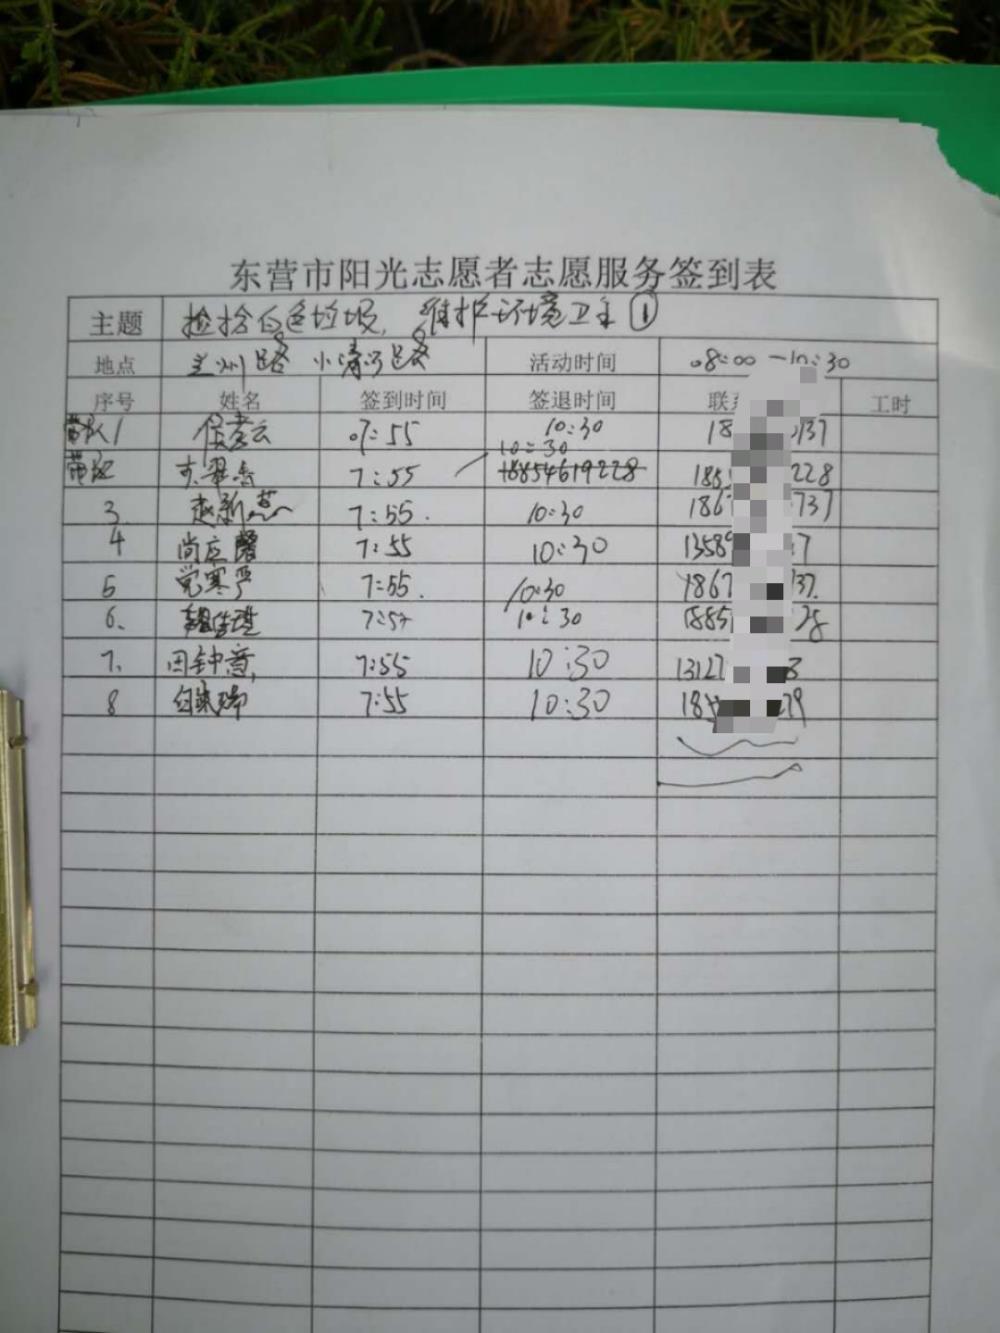 东营市阳光志愿者志愿服务签到表
主题 捡拾白色垃圾，维护环境卫生①
地点 兰州路 小清河路 活动时间 08:00 — 10:30
序号 姓名 签到时间 签退时间 联系 工时
带队1 侯孝云 07:55 10:30 18 137
带班 7:55 10:30 18854619228 185 228
3 赵新燕 7:55. 10:30 1867 737
4 尚应馨 7:55 10:30 1358 7
5 党寒严 7:55. 10:30 1867 37.
6. 7:57 10:30 1885 28
7. 田钟意, 7:55 10:30 13127 8
8 7:55 10:30 18 79